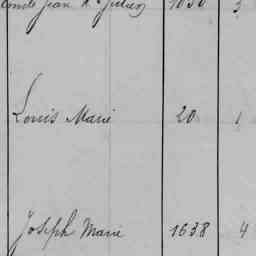 Jean 1030 3
Louis Marie 20 1
Joseph Marie 1638 4